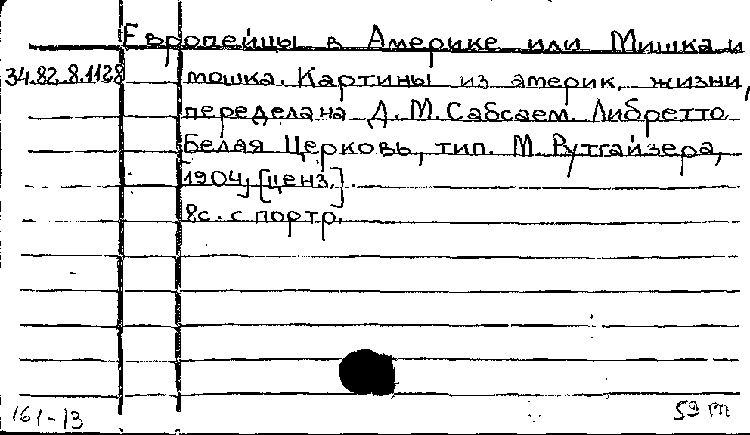 Европейцы в Америке или Мишка и
34.82.8.1128 мошка. Картины из америк. жизни,
переделана Д. М. Сабсаем. Либретто
Белая Церковь, тип. М. Рутгайзера,
1904, [ценз.].
8с. с портр.
161-13
59 т